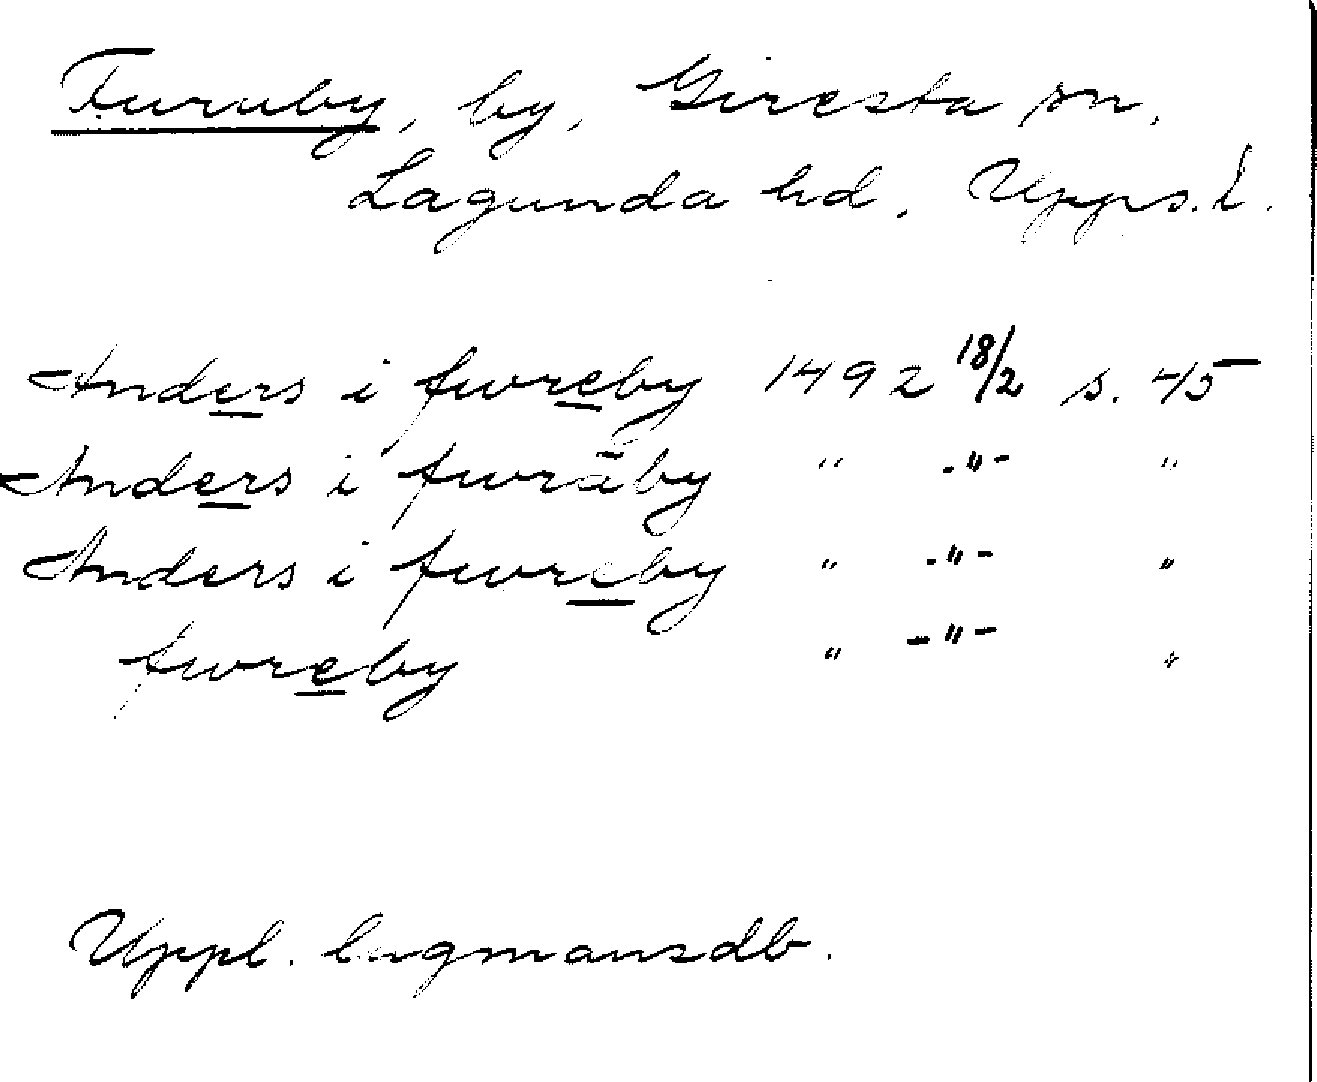 Furuby, by, Giresta sn,
Lagunda hd, Upps. l.
Anders i fwreby 1492 18/2 s. 45
Anders i fwräby " -"- "
Anders i fwreby " -"- "
fwreby " -"- "
Uppl. lagmansdb.